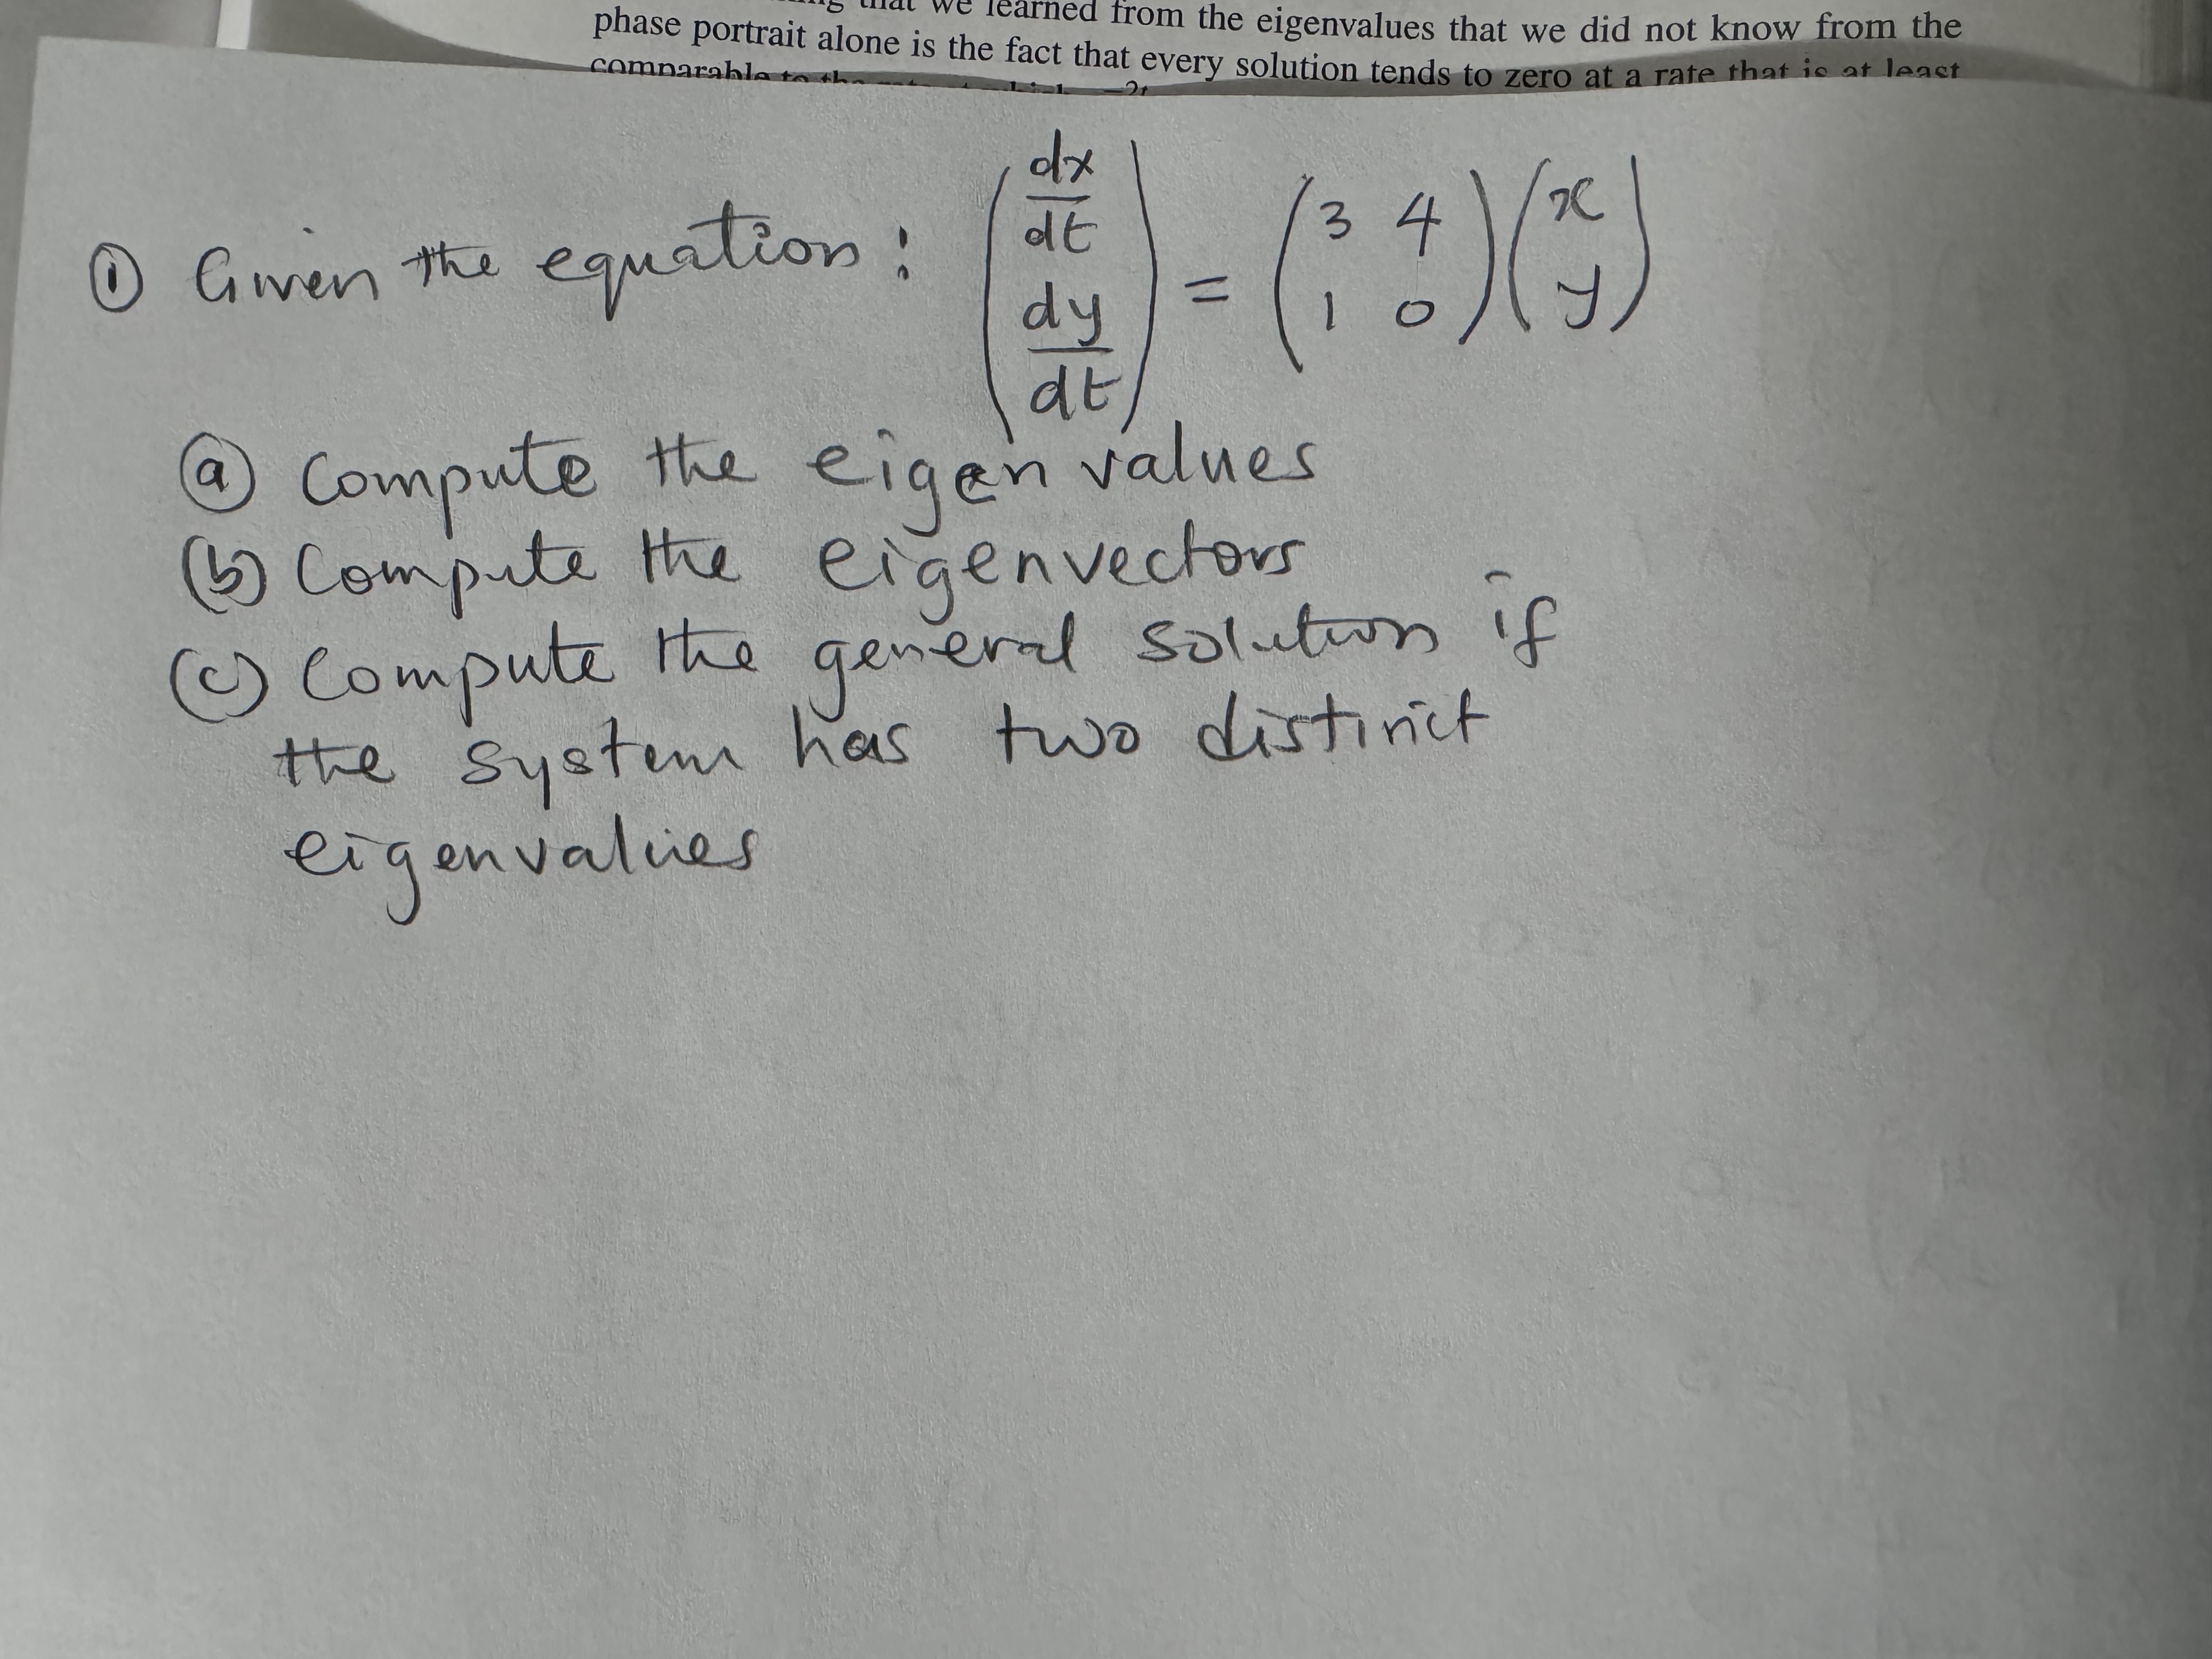 that we learned from the eigenvalues that we did not know from the
phase portrait alone is the fact that every solution tends to zero at a rate that is at least
comparable to the
① Given the equation: (dx/dt dy/dt) = (3 4 1 0)(x y)
ⓐ Compute the eigen values
(b) Compute the eigenvectors
(c) Compute the general solution if
the system has two distinct
eigenvalues